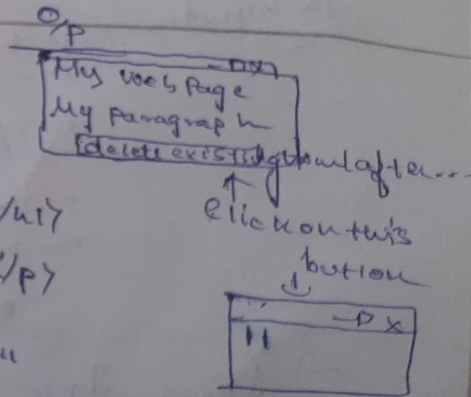 O/P
My web Page
My paragraph
delete existing html after...
click on this
button
/h1>
/p>
"